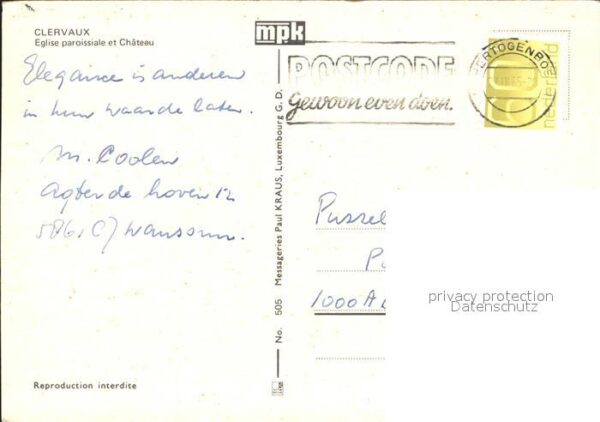 CLERVAUX
Eglise paroissiale et Château
mpk
POSTCODE
gewoon even doen.
HERTOGENBOSCH
nederland
Elegance is anderen
in hun waarde laten.
M. Coolen
Agter de hoven 12
5861 CJ Wanssum.
No. 505 Messageries Paul KRAUS, Luxembourg G. D.
Puzzel
P
1000 A
privacy protection
Datenschutz
Reproduction interdite